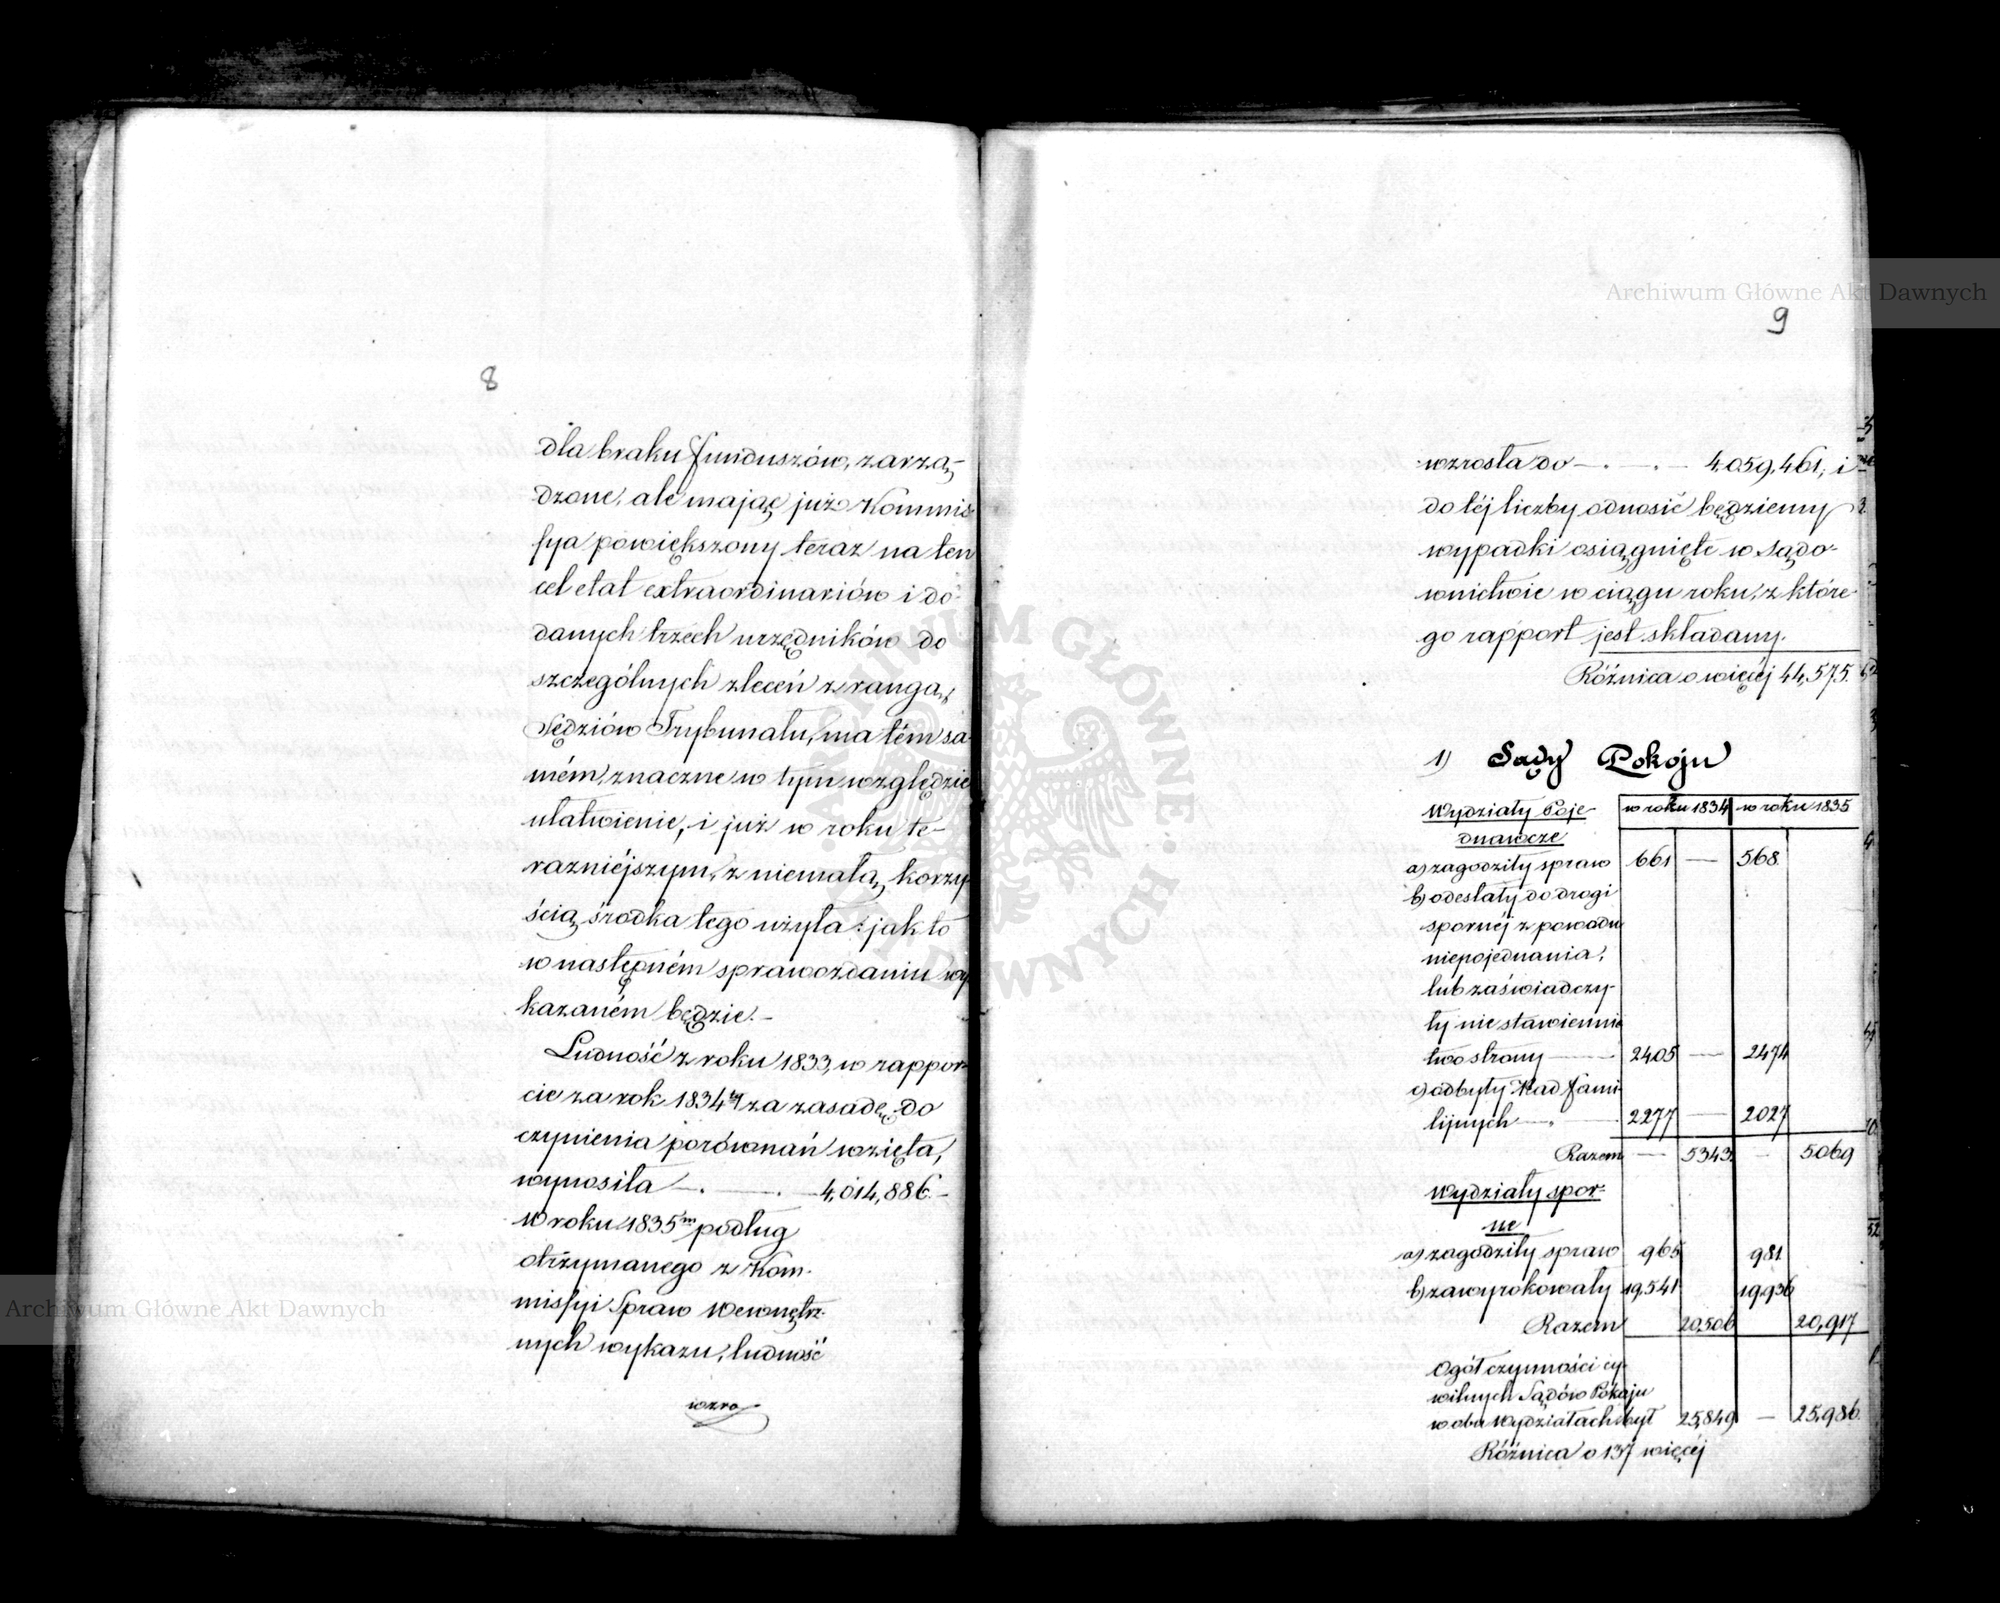 8
dla braku funduszów, zarzą-
dzone, ale mając już Kommis-
sya powiększony teraz na ten
cel etat extraordinariów i do-
danych trzech urzędników do
szczególnych zleceń z rangą,
Sędziów Trybunału, ma tém sa-
mém, znaczne w tym względzie
ułatwienie, i już w roku te-
razniéjszym, z niemałą korzy-
ścią środka tego użyła: jak to
w następném sprawozdaniu wy-
kazaném będzie.-
Ludność z roku 1833, w rappor-
cie za rok 1834ty za zasadę do
czynienia porównań wzięta,
wynosiła — . — . — 4,014,886.-
W roku 1835m podług
otrzymanego z Kom-
missyi Spraw Wewnętrz-
nych wykazu, ludność
wzro
9
wzrosła do — . — . — 4.059,461, i
do téj liczby odnosić będziemy
wypadki osiągnięte w Sądo-
wnictwie w ciągu roku, z które-
go rapport jest składany.
Różnica o więcéj 44,575.
1) Sądy Pokoju
w roku 1834 w roku 1835
Wydziały Poje-
dnawcze
a) zagodziły spraw 661 — 568
b) odesłały do drogi
spornéj z powodu
niepojednania,
lub zaświadczy-
ły niestawiennic-
two strony — 2405 — 2474
c) odbyły Rad fami-
lijnych — . — 2277 — 2027
Razem — 5343. — 5069
Wydziały spor-
ne
a) zagodziły spraw 965 981
b) zawyrokowały 19,541 19,936
Razem 20,506 20,917
Ogół czynności cy-
wilnych Sądów Pokoju
w obu Wydziałach był 25,849 — 25,986.
Różnica o 137 więcéj
Archiwum Główne Akt Dawnych
Archiwum Główne Akt Dawnych
ARCHIWUM GŁÓWNE AKT DAWNYCH